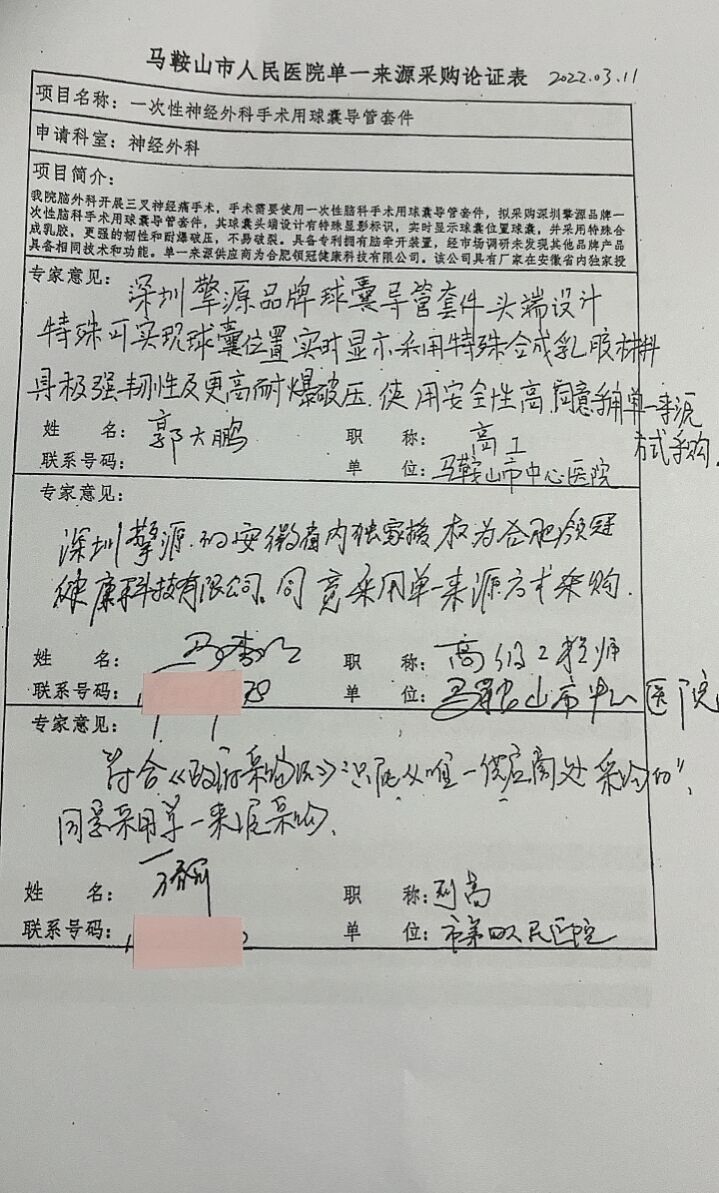 马鞍山市人民医院单一来源采购论证表 2022.03.11
项目名称：一次性神经外科手术用球囊导管套件
申请科室：神经外科
项目简介：
我院脑外科开展三叉神经痛手术，手术需要使用一次性脑科手术用球囊导管套件，拟采购深圳擎源品牌一
次性脑科手术用球囊导管套件，其球囊头端设计有特殊显影标识，实时显示球囊位置球囊，并采用特殊合
成乳胶，更强的韧性和耐爆破压，不易破裂。具备专利拥有脑牵开装置，经市场调研未发现其他品牌产品
具备相同技术和功能。单一来源供应商为合肥领冠健康科技有限公司。该公司具有厂家在安徽省内独家授
专家意见：
深圳擎源品牌球囊导管套件头端设计
特殊可实现球囊位置实时显示采用特殊合成乳胶材料
具极强韧性及更高耐爆破压.使用安全性高.同意采用单一来源
方式采购.
姓 名：郭大鹏 职 称：高工
联系号码： 单 位：马鞍山市中心医院
专家意见：
深圳擎源.的安徽省内独家授权为合肥领冠
健康科技有限公司。同意采用单一来源方式采购.
姓 名： 职 称：高级工程师
联系号码： 单 位：马鞍山市中心医院
专家意见：
符合《政府采购法》"只能从唯一供应商处采购的"，
同意采用单一来源采购.
姓 名： 职 称：副高
联系号码： 单 位：市第四人民医院